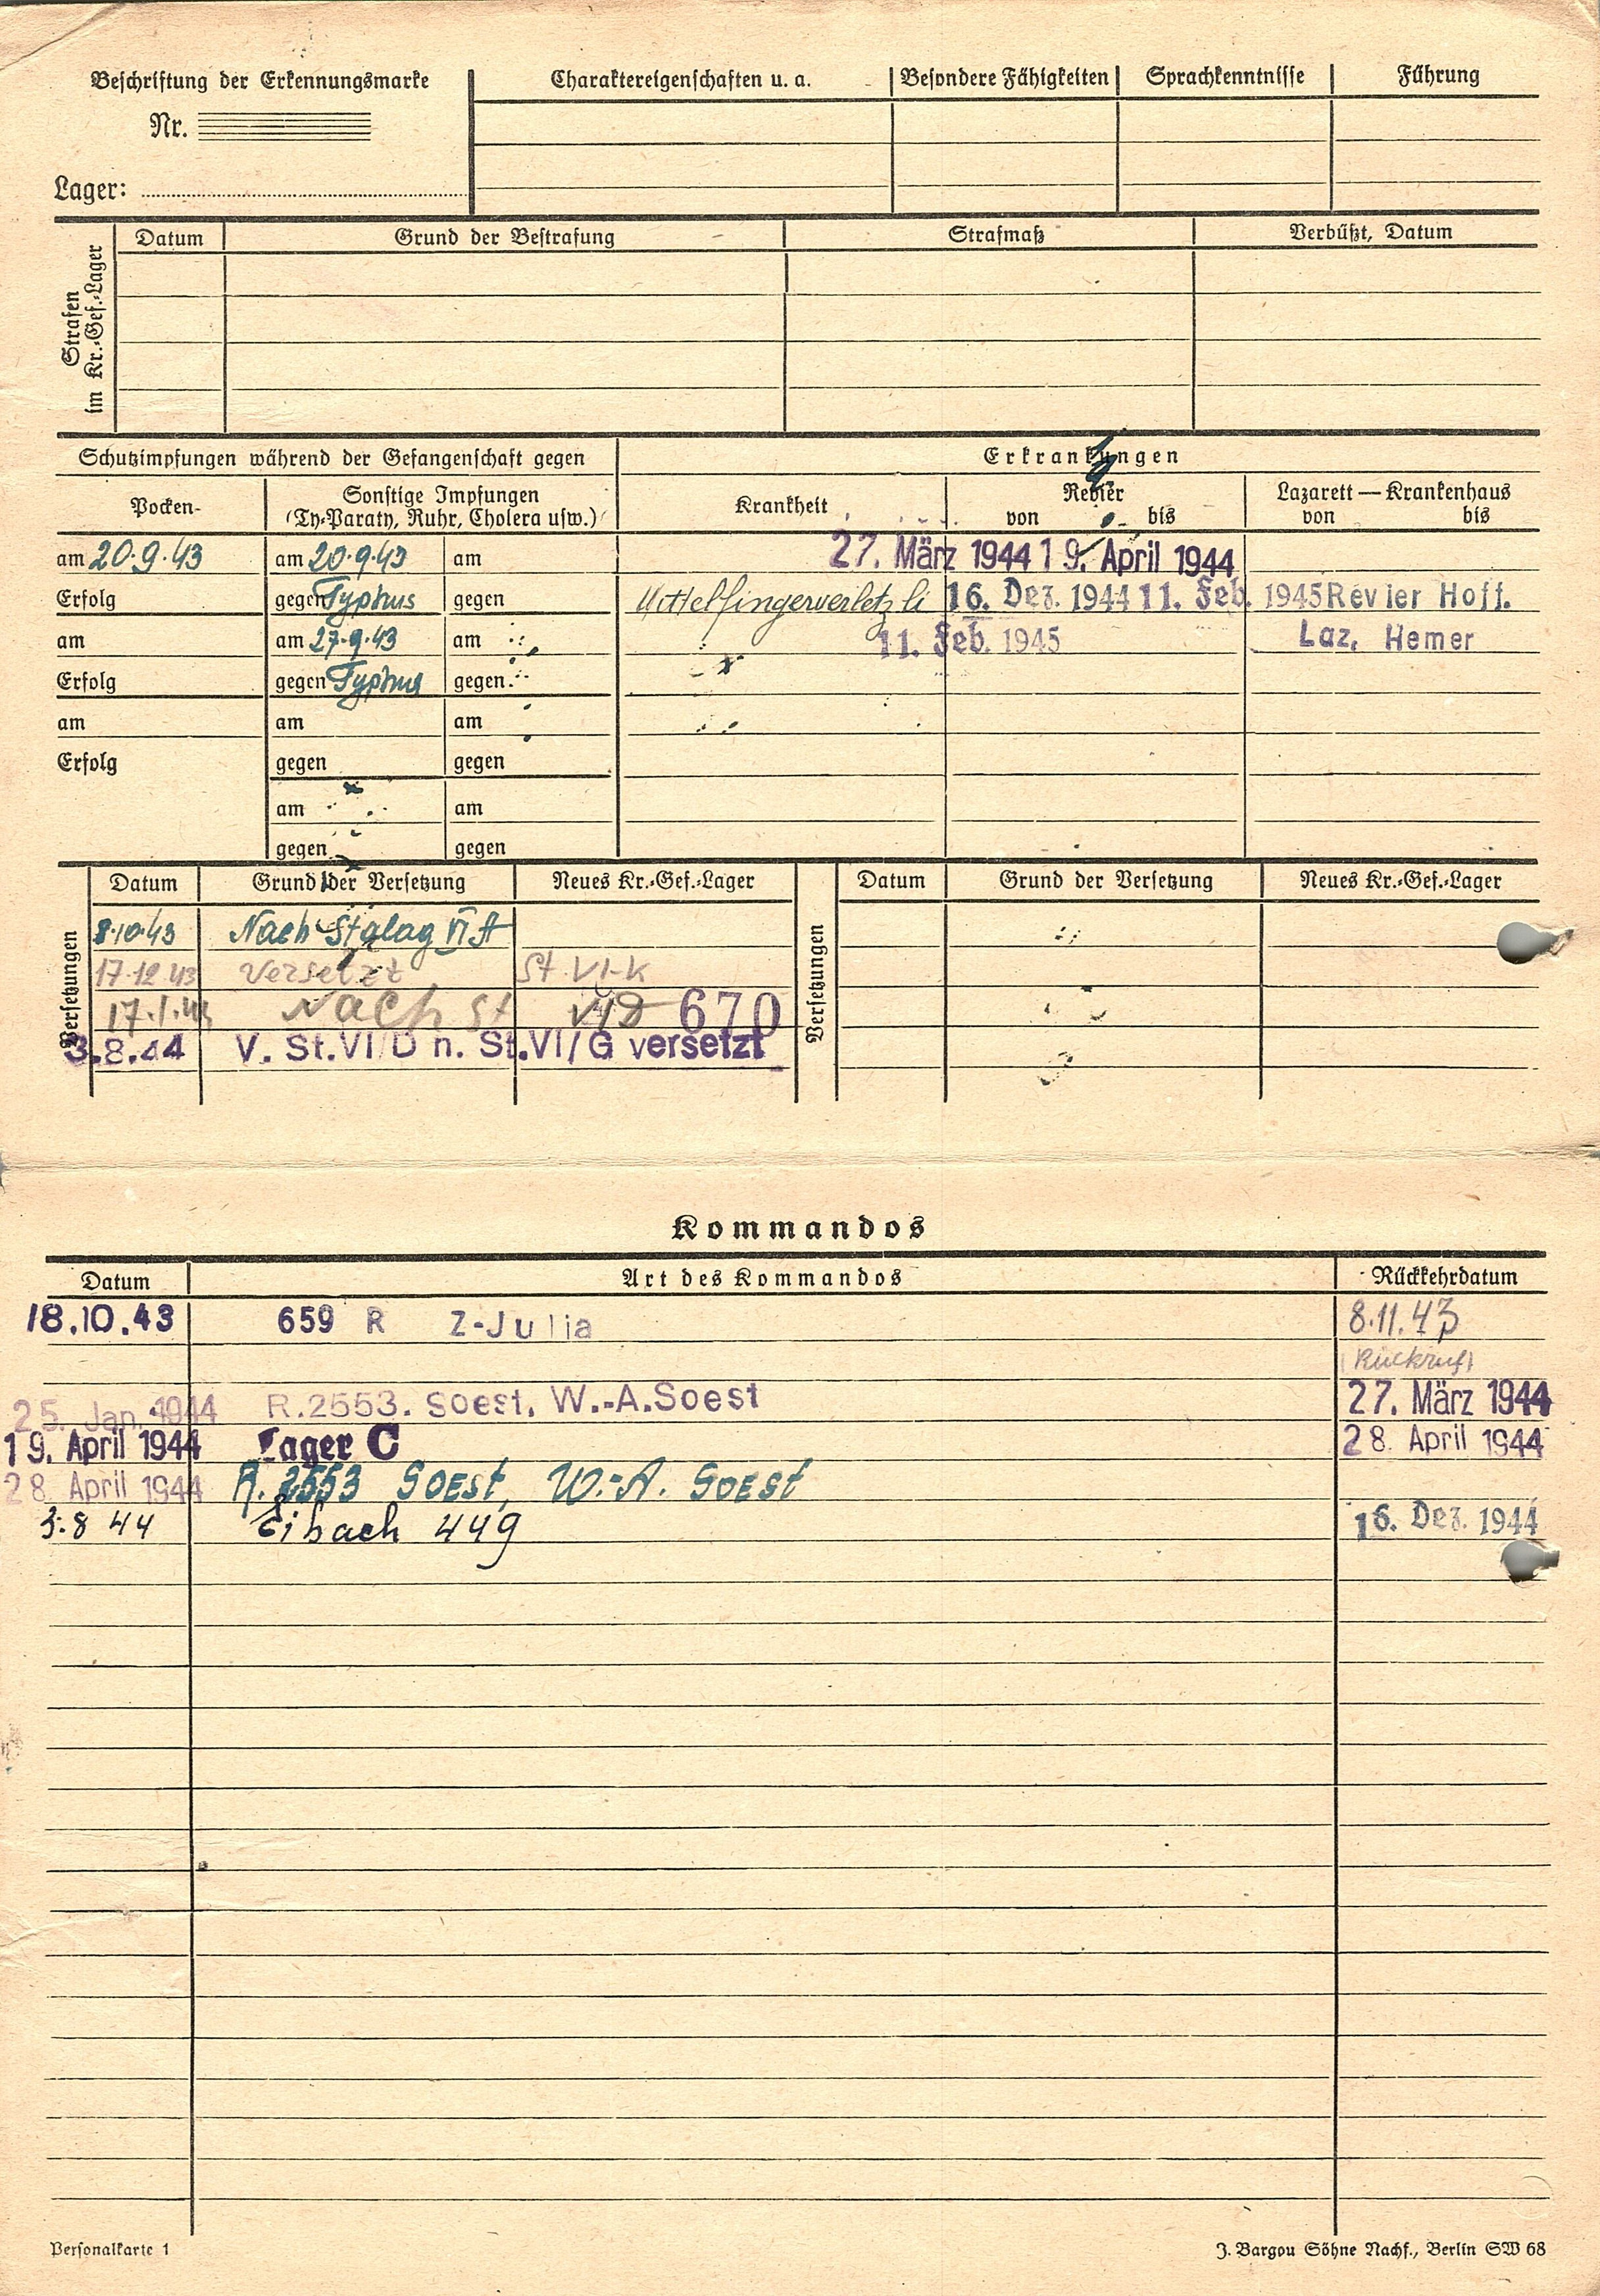 Beschriftung der Erkennungsmarke
Nr.
Lager:
Charaktereigenschaften u. a. Besondere Fähigkeiten Sprachkenntnisse Führung
Strafen im Kr.-Gef.-Lager
Datum Grund der Bestrafung Strafmaß Verbüßt, Datum
Schutzimpfungen während der Gefangenschaft gegen Erkrankungen
Pocken- Sonstige Impfungen (Ty-Paraty, Ruhr, Cholera usw.) Krankheit Revier von bis Lazarett — Krankenhaus von bis
am 20.9.43 am 20.9.43 am 27. März 1944 19. April 1944
Erfolg gegen Typhus gegen Mittelfingerverletz li 16. Dez. 1944 11. Feb. 1945 Revier Hoff.
am am 27.9.43 am 11. Feb. 1945 Laz. Hemer
Erfolg gegen Typhus gegen
am am am
Erfolg gegen gegen
am am
gegen gegen
Versetzungen Datum Grund der Versetzung Neues Kr.-Gef.-Lager Versetzungen Datum Grund der Versetzung Neues Kr.-Gef.-Lager
8.10.43 Nach Stalag VI A
17.12.43 Versetzt St. VI-K
17.1.44 Nach St VID 670
3.8.44 V. St.VI/D n. St.VI/G versetzt
Kommandos
Datum Art des Kommandos Rückkehrdatum
18.10.43 659 R Z-Julia 8.11.43
(Rückruf)
25. Jan. 1944 R.2553. Soest. W.-A.Soest 27. März 1944
19. April 1944 Lager C 28. April 1944
28. April 1944 R. 2553 Soest, W.-A. Soest
3.8 44 Eibach 449 16. Dez. 1944
Personalkarte 1 J. Bargou Söhne Nachf., Berlin SW 68